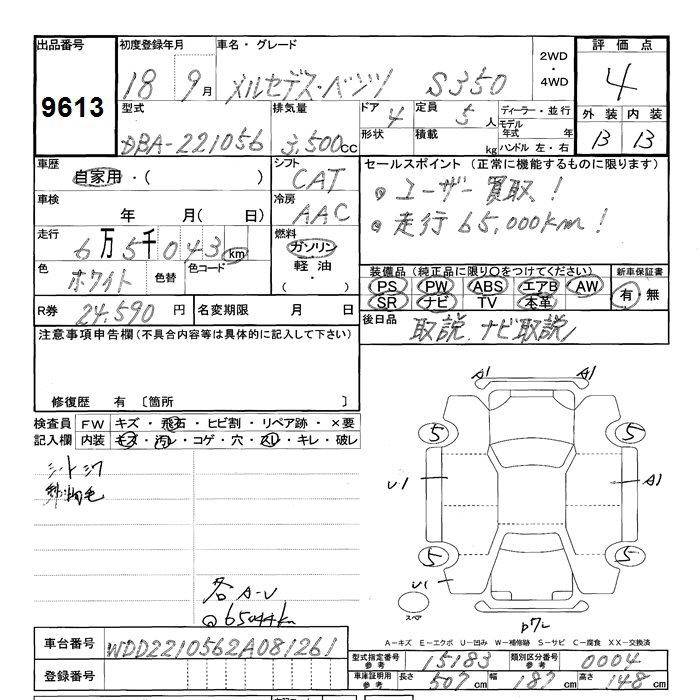 出品番号 初度登録年月 車名・グレード 2WD・4WD 評価点
9613 18 9月 メルセデス・ベンツ S350 4
型式 排気量 ドア 4 定員 5人 ディーラー・並行 外装 内装
DBA-221056 3,500cc 形状 積載 kg モデル年式 年 ハンドル 左・右 13 13
車歴 自家用・( ) シフト CAT セールスポイント (正常に機能するものに限ります)
車検 年 月(日) 冷房 AAC ・ユーザー買取!
走行 6万5千043km 燃料 ガソリン 軽油・( ) ・走行65,000km!
色 ホワイト 色替 色コード 装備品(純正品に限り○をつけてください) 新車保証書
PS PW ABS エアB AW 有・無
SR ナビ TV 本革
R券 24,590円 名変期限 月 日 後日品 取説、ナビ取説
注意事項申告欄(不具合内容等は具体的に記入して下さい)
修復歴 有 〔箇所 〕
検査員 FW キズ・飛石・ヒビ割・リペア跡・×要
記入欄 内装 キズ・汚レ・コゲ・穴・スレ・キレ・破レ
シートシワ
各A-U
@65044km
A1 A1
5 5
U1 A1
5 5
U1
スペア
A-キズ E-エクボ U-凹み W-補修跡 S-サビ C-腐食 XX-交換済
車台番号 WDD2210562A081261
型式指定番号 参考 15183 類別区分番号 参考 0004
登録番号 車庫証明用 参考 長さ 507cm 幅 187cm 高さ 148cm